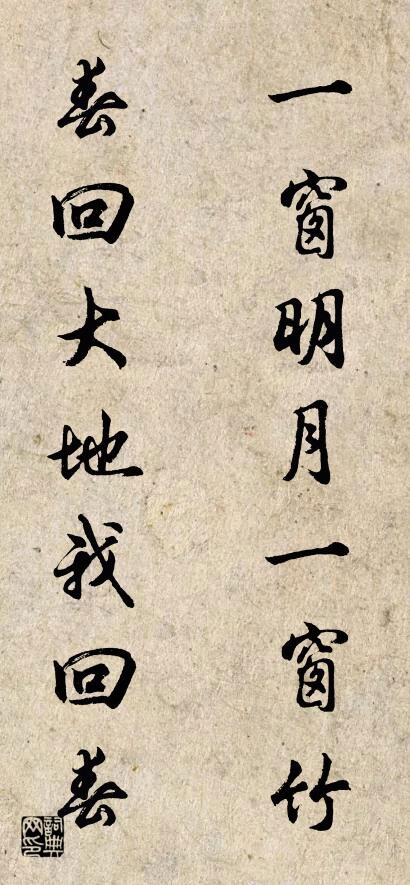 一窗明月一窗竹
春回大地我回春